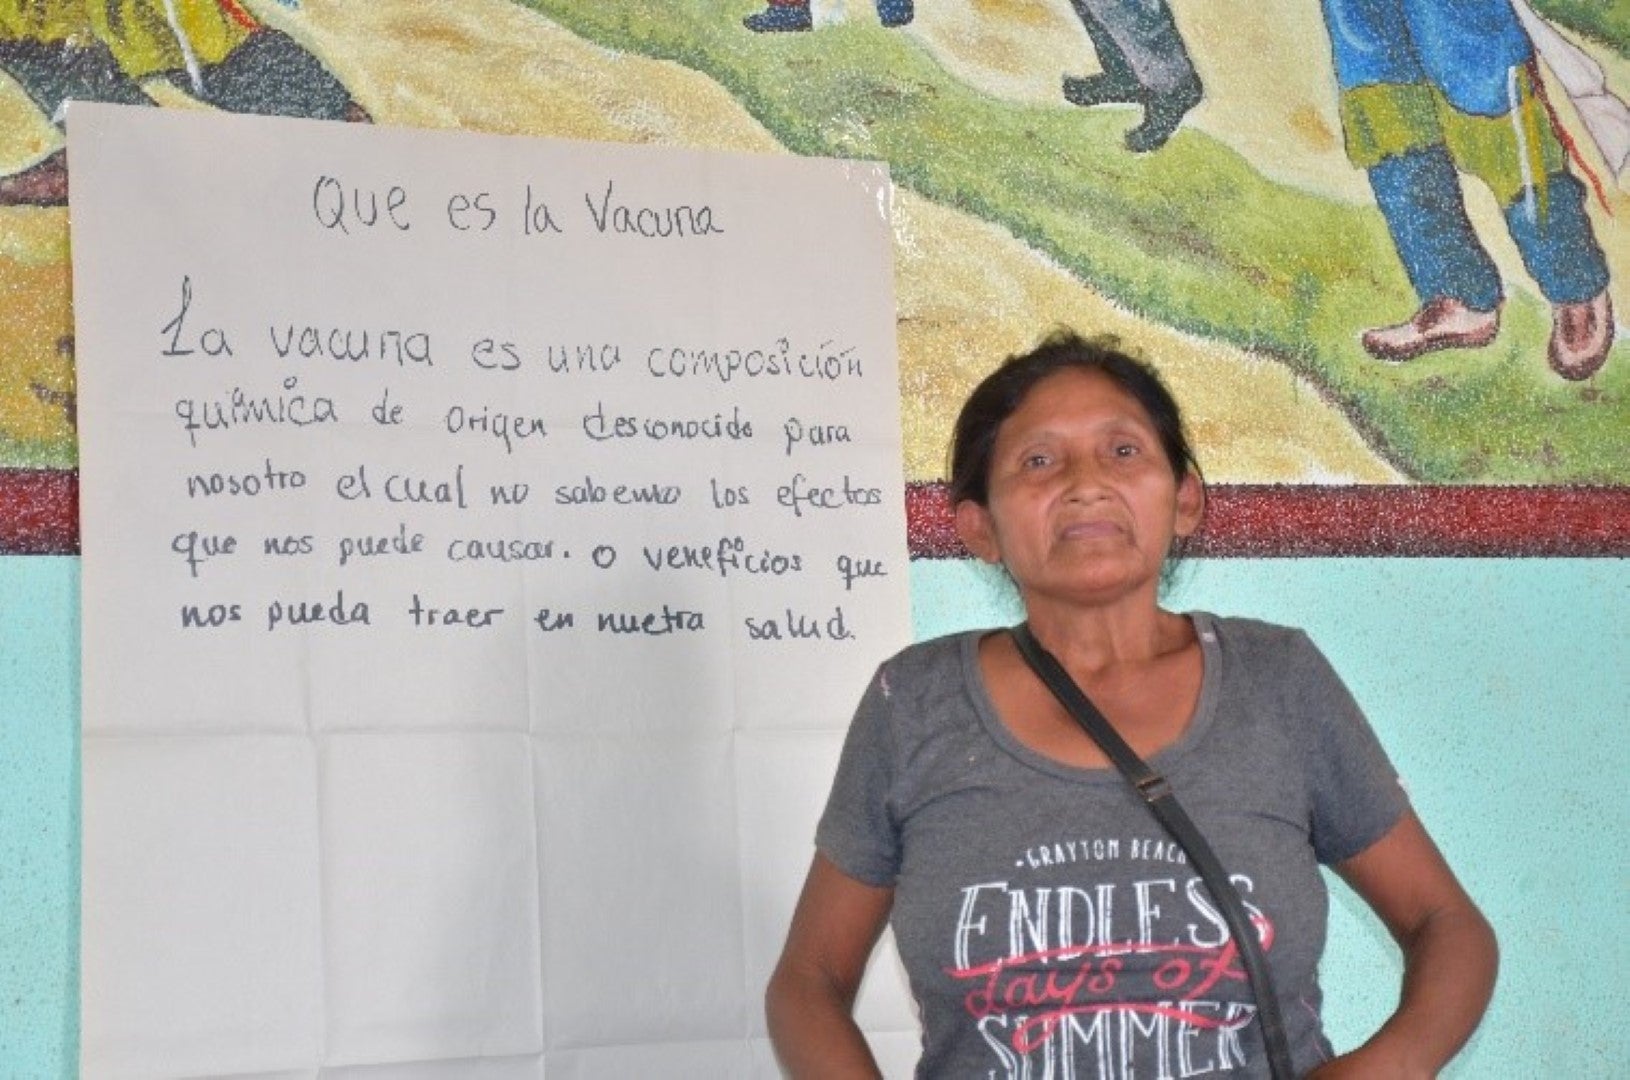 Que es la Vacuna
La vacuna es una composición
química de origen desconocido para
nosotro el cual no sabemo los efectos
que nos puede causar. o veneficios que
nos pueda traer en nuetra salud.
-GRAYTON BEACH
ENDLESS
days of
SUMMER